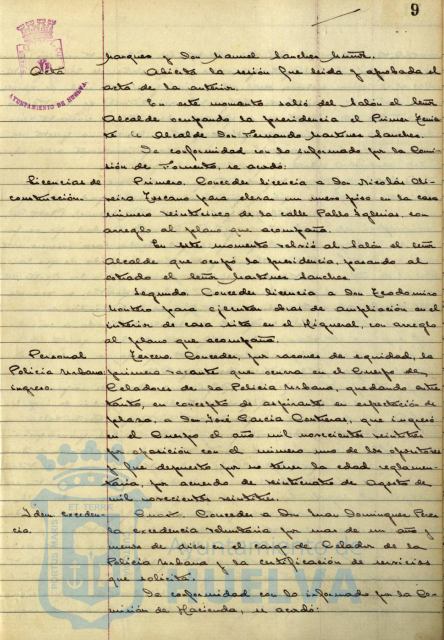 9
AYUNTAMIENTO DE HUELVA
Marquez y Don Manuel Sanchez Muñoz.
Acta Abierta la sesión fue leida y aprobada el
acta de la anterior.
En este momento salió del Salón el Señor
Alcalde ocupando la presidencia el Primer Tenien
te de Alcalde Don Fernando Martinez Sanchez.
De conformidad con lo informado por la Comi
sión de Fomento, se acordó:
Licencias de Primero. Conceder licencia a Don Nicolás Oli
construcción. veira Toscano para elevar un nuevo piso en la casa
número veinticinco de la calle Pablo Iglesias, con
arreglo al plano que acompaña.
En este momento volvió al Salón el Señor
Alcalde que ocupó la presidencia, pasando al
estrado el Señor Martinez Sanchez
Segundo. Conceder licencia a Don Teodomiro
Montero para ejecutar obras de ampliación en el
interior de casa sita en el Higueral, con arreglo
al plano que acompaña.
Personal Tercero. Conceder, por razones de equidad, la
Policia Urbana primera vacante que ocurra en el Cuerpo de
ingreso. Celadores de la Policia Urbana, quedando entre
tanto, en concepto de aspirante en expectación de
plaza, a Don José Garcia Contreras, que ingresó
en el Cuerpo el año mil novecientos veintitres
por oposición con el número uno de los opositores
y fue depuesto por no tener la edad reglamen
taria, por acuerdo de veinticuatro de Agosto de
mil novecientos veintitres.
Idem exceden Cuarto. Conceder a Don Juan Dominguez Perez
cia. la excedencia voluntaria por mas de un año y
menos de diez en el cargo de Celador de la
Policia Urbana y la certificación de servicios
que solicita.
De conformidad con lo informado por la Co
misión de Hacienda, se acordó:
Ayuntamiento de
HUELVA